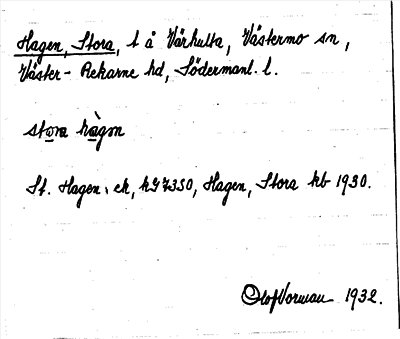 Hagen, Stora, t å Vårhulta, Västermo sn,
Väster-Rekarne hd, Södermanl. l.
stora hàgen
St. Hagen: ek,
Hagen, Stora kb 1930.
Olof Vorman 1932.